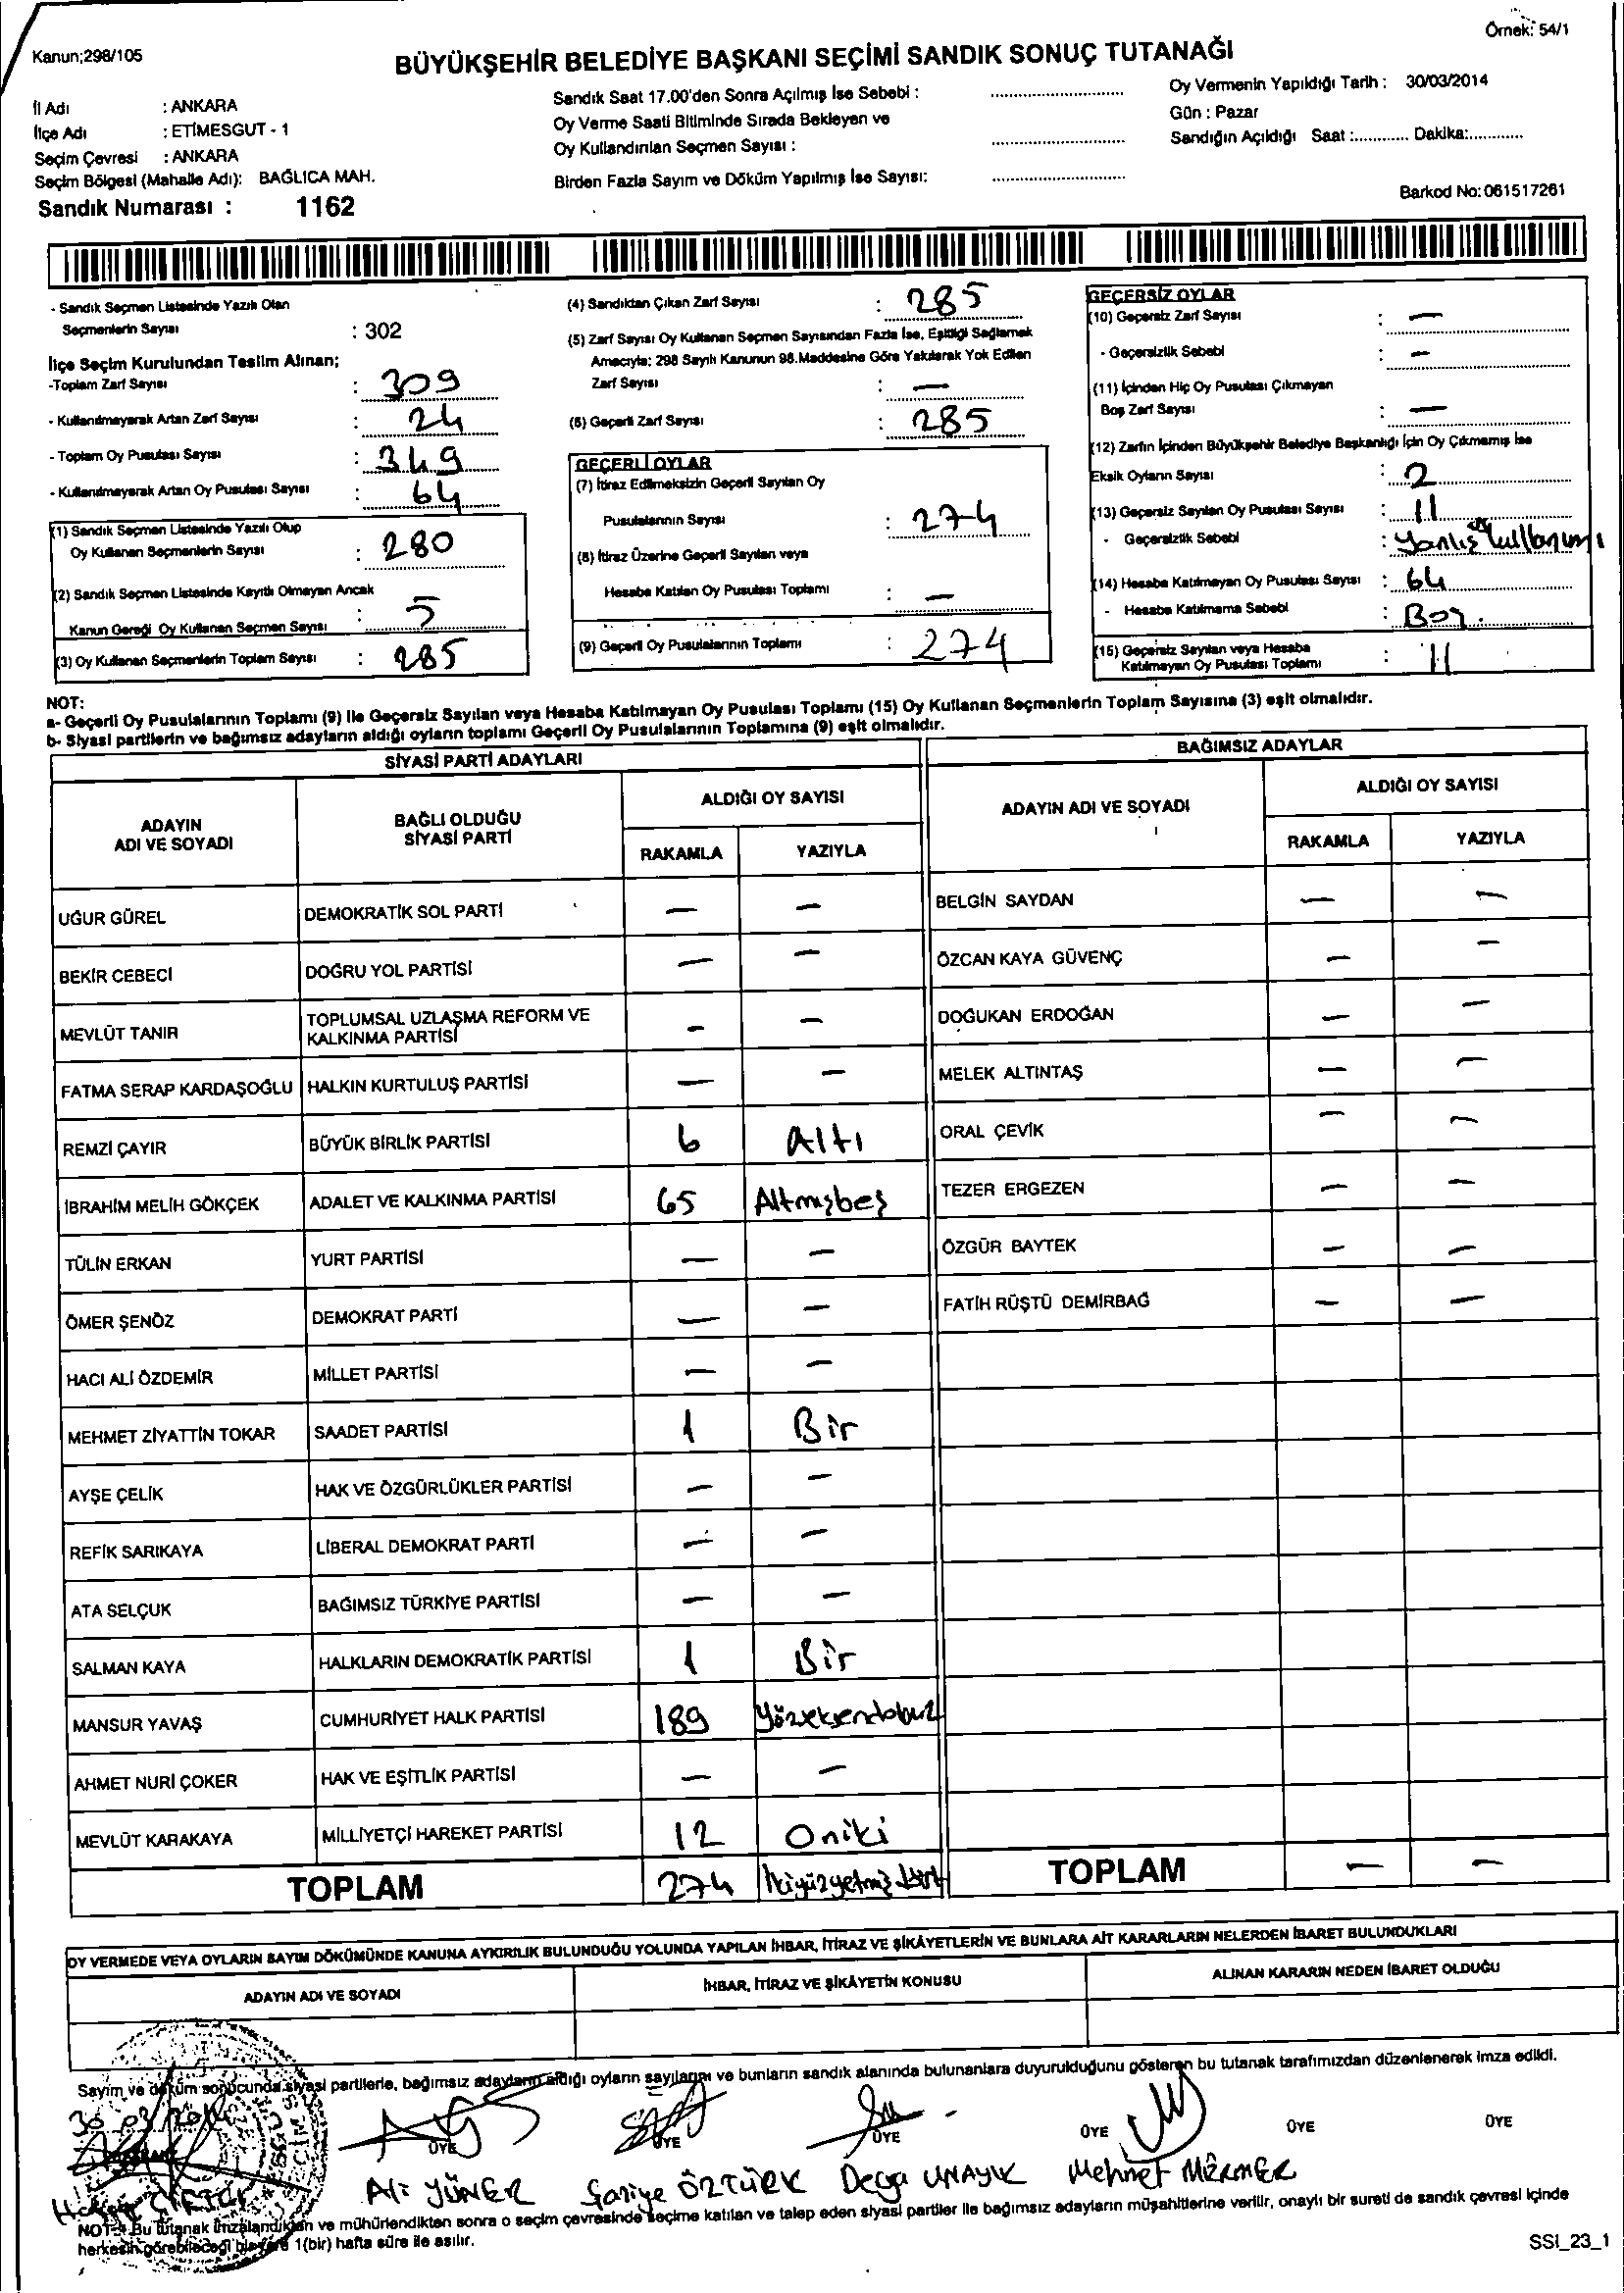 Örnek: 54/1
Kanun;298/105
BÜYÜKŞEHİR BELEDİYE BAŞKANI SEÇİMİ SANDIK SONUÇ TUTANAĞI
İl Adı : ANKARA
İlçe Adı : ETİMESGUT - 1
Seçim Çevresi : ANKARA
Seçim Bölgesi (Mahalle Adı): BAĞLICA MAH.
Sandık Numarası : 1162
Sandık Saat 17.00'den Sonra Açılmış İse Sebebi :
Oy Verme Saati Bitiminde Sırada Bekleyen ve
Oy Kullandırılan Seçmen Sayısı :
Birden Fazla Sayım ve Döküm Yapılmış İse Sayısı:
Oy Vermenin Yapıldığı Tarih : 30/03/2014
Gün : Pazar
Sandığın Açıldığı Saat :............ Dakika:............
Barkod No: 061517261
- Sandık Seçmen Listesinde Yazılı Olan
Seçmenlerin Sayısı : 302
İlçe Seçim Kurulundan Teslim Alınan;
-Toplam Zarf Sayısı : 309
- Kullanılmayarak Artan Zarf Sayısı : 24
- Toplam Oy Pusulası Sayısı : 349
- Kullanılmayarak Artan Oy Pusulası Sayısı : 64
(1) Sandık Seçmen Listesinde Yazılı Olup
Oy Kullanan Seçmenlerin Sayısı : 280
(2) Sandık Seçmen Listesinde Kayıtlı Olmayan Ancak
Kanun Gereği Oy Kullanan Seçmen Sayısı : 5
(3) Oy Kullanan Seçmenlerin Toplam Sayısı : 285
(4) Sandıktan Çıkan Zarf Sayısı : 285
(5) Zarf Sayısı Oy Kullanan Seçmen Sayısından Fazla İse, Eşitliği Sağlamak
Amacıyla; 298 Sayılı Kanunun 98.Maddesine Göre Yakılarak Yok Edilen
Zarf Sayısı : —
(6) Geçerli Zarf Sayısı : 285
GEÇERLİ OYLAR
(7) İtiraz Edilmeksizin Geçerli Sayılan Oy
Pusulalarının Sayısı : 274
(8) İtiraz Üzerine Geçerli Sayılan veya
Hesaba Katılan Oy Pusulası Toplamı : —
(9) Geçerli Oy Pusulalarının Toplamı : 274
GEÇERSİZ OYLAR
(10) Geçersiz Zarf Sayısı : —
- Geçersizlik Sebebi : —
(11) İçinden Hiç Oy Pusulası Çıkmayan
Boş Zarf Sayısı : —
(12) Zarfın İçinden Büyükşehir Belediye Başkanlığı İçin Oy Çıkmamış İse
Eksik Oyların Sayısı : 2
(13) Geçersiz Sayılan Oy Pusulası Sayısı : 11
- Geçersizlik Sebebi : Yanlış kullanımı
(14) Hesaba Katılmayan Oy Pusulası Sayısı : 64
- Hesaba Katılmama Sebebi : Boş.
(15) Geçersiz Sayılan veya Hesaba
Katılmayan Oy Pusulası Toplamı : 11
NOT:
a- Geçerli Oy Pusulalarının Toplamı (9) ile Geçersiz Sayılan veya Hesaba Katılmayan Oy Pusulası Toplamı (15) Oy Kullanan Seçmenlerin Toplam Sayısına (3) eşit olmalıdır.
b- Siyasi partilerin ve bağımsız adayların aldığı oyların toplamı Geçerli Oy Pusulalarının Toplamına (9) eşit olmalıdır.
SİYASİ PARTİ ADAYLARI
ADAYIN ADI VE SOYADI
BAĞLI OLDUĞU SİYASİ PARTİ
ALDIĞI OY SAYISI
RAKAMLA YAZIYLA
UĞUR GÜREL DEMOKRATİK SOL PARTİ — —
BEKİR CEBECİ DOĞRU YOL PARTİSİ — —
MEVLÜT TANIR TOPLUMSAL UZLAŞMA REFORM VE KALKINMA PARTİSİ — —
FATMA SERAP KARDAŞOĞLU HALKIN KURTULUŞ PARTİSİ — —
REMZİ ÇAYIR BÜYÜK BİRLİK PARTİSİ 6 Altı
İBRAHİM MELİH GÖKÇEK ADALET VE KALKINMA PARTİSİ 65 Altmışbeş
TÜLİN ERKAN YURT PARTİSİ — —
ÖMER ŞENÖZ DEMOKRAT PARTİ — —
HACI ALİ ÖZDEMİR MİLLET PARTİSİ — —
MEHMET ZİYATTİN TOKAR SAADET PARTİSİ 1 Bir
AYŞE ÇELİK HAK VE ÖZGÜRLÜKLER PARTİSİ — —
REFİK SARIKAYA LİBERAL DEMOKRAT PARTİ — —
ATA SELÇUK BAĞIMSIZ TÜRKİYE PARTİSİ — —
SALMAN KAYA HALKLARIN DEMOKRATİK PARTİSİ 1 Bir
MANSUR YAVAŞ CUMHURİYET HALK PARTİSİ 189 Yüzseksendokuz
AHMET NURİ ÇOKER HAK VE EŞİTLİK PARTİSİ — —
MEVLÜT KARAKAYA MİLLİYETÇİ HAREKET PARTİSİ 12 Oniki
TOPLAM 274 İkiyüzyetmiş dört
BAĞIMSIZ ADAYLAR
ADAYIN ADI VE SOYADI
ALDIĞI OY SAYISI
RAKAMLA YAZIYLA
BELGİN SAYDAN — —
ÖZCAN KAYA GÜVENÇ — —
DOĞUKAN ERDOĞAN — —
MELEK ALTINTAŞ — —
ORAL ÇEVİK — —
TEZER ERGEZEN — —
ÖZGÜR BAYTEK — —
FATİH RÜŞTÜ DEMİRBAĞ — —
TOPLAM — —
OY VERMEDE VEYA OYLARIN SAYIM DÖKÜMÜNDE KANUNA AYKIRILIK BULUNDUĞU YOLUNDA YAPILAN İHBAR, İTİRAZ VE ŞİKÂYETLERİN VE BUNLARA AİT KARARLARIN NELERDEN İBARET BULUNDUKLARI
ADAYIN ADI VE SOYADI
İHBAR, İTİRAZ VE ŞİKÂYETİN KONUSU
ALINAN KARARIN NEDEN İBARET OLDUĞU
Sayım ve döküm sonucunda siyasi partilerle, bağımsız adayların aldığı oyların sayılarını ve bunların sandık alanında bulunanlara duyurulduğunu gösteren bu tutanak tarafımızdan düzenlenerek imza edildi.
30.03/2014
ÜYE ÜYE ÜYE ÜYE ÜYE ÜYE
Ali YÜNER
ÖZTÜRK
Derya UNAYIK
Mehmet MERMER
NOT-1 Bu tutanak imzalandıktan ve mühürlendikten sonra o seçim çevresinde seçime katılan ve talep eden siyasi partiler ile bağımsız adayların müşahitlerine verilir, onaylı bir sureti de sandık çevresi içinde
herkesin görebileceği bir yere 1(bir) hafta süre ile asılır.
SSI_23_1